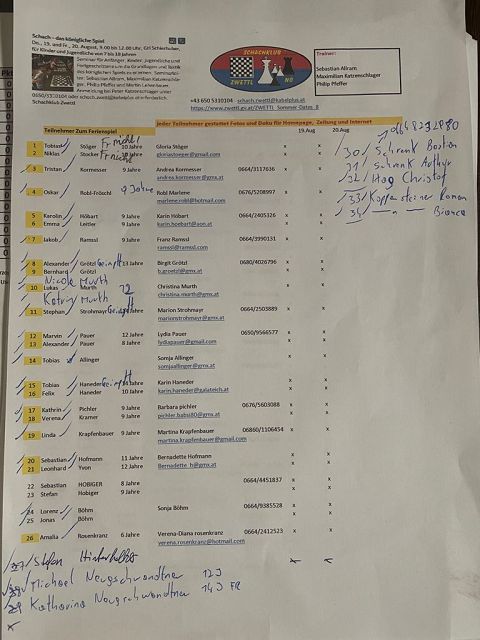 Schach – das königliche Spiel
Do., 19. und Fr., 20. August, 9.00 bis 12.00 Uhr,
für Kinder und Jugendliche von 7 bis 18 Jahren
Seminar für Anfänger, Kinder, Jugendliche und
0650/5310104 oder schach.zwettl@kabelplus.at erforderlich.
Schachklub Zwettl
SCHACHKLUB
ZWETTL NÖ
Trainer:
Sebastian Allram
Maximilian Katzenschlager
Philip Pfeffer
+43 650 5310104 schach.zwettl@kabelplus.at
Jeder Teilnehmer gestattet Fotos und Doku für Homepage, Zeitung und Internet
Teilnehmer Zum Ferienspiel 19.Aug 20.Aug
1 Tobias Stöger 10 Jahre Gloria Stöger x x
2 Niklas Stöcker gloriastoeger@gmail.com x x
3 Tristan Kormesser 9 Jahre Andrea Kormesser 0664/3117636 x x
andrea.kormesser@gmx.at
4 Oskar Robl-Fröschl 9 Jahre Robl Marlene 0676/5208997 x x
marlene.robl@hotmail.com
5 Karolin Höbart 9 Jahre Karin Höbart 0664/2405326 x x
6 Emma Leitler 9 Jahre karin.hoebart@aon.at x x
7 Jakob Ramssl 9 Jahre Franz Ramssl 0664/3990131 x x
ramssl@ramssl.com
8 Alexander Grötzl 13 Jahre Birgit Grötzl 0680/4026796 x x
9 Bernhard Grötzl 9 Jahre b.groetzl@gmx.at x x
Nicole Murth
10 Lukas Murth 12 Christina Murth x x
Katrin Murth christina.murth@gmx.at
11 Stephan Strohmayr Jahre Marion Strohmayr 0664/2503889 x x
marionstrohmayr@gmx.at
12 Marvin Pauer 12 Jahre Lydia Pauer 0650/9566577 x x
13 Alexander Pauer 8 Jahre lydiapauer@gmail.com x x
14 Tobias Allinger Sonja Allinger x x
sonjaallinger@gmx.at
15 Tobias Haneder Jahre Karin Haneder x x
16 Felix Haneder 10 Jahre karin.haneder@galateich.at x x
17 Kathrin Pichler 9 Jahre Barbara pichler 0676/5603088 x x
18 Verena Kramer 9 Jahre pichler.babsi80@gmx.at x x
19 Linda Krapfenbauer 9 Jahre Martina Krapfenbauer 06860/1106454 x x
martina.krapfenbauer@gmail.com
20 Sebastian Hofmann 11 Jahre Bernadette Hofmann x x
21 Leonhard Yvon 12 Jahre Bernadette_h@gmx.at x x
22 Sebastian HOBIGER 8 Jahre 0664/4451837 x x
23 Stefan Hobiger 9 Jahre x x
24 Lorenz Böhm Sonja Böhm 0664/9385528 x x
25 Jonas Böhm x x
26 Amalia Rosenkranz 6 Jahre Verena-Diana rosenkranz 0664/2412523 x x
verena.rosenkranz@hotmail.com
30 Schrenk Bastian
31 Schrenk Arthur
32 Hag Christof
33 Koppensteiner Roman
34 —"— Bianca
27 Stefan Hinterholzer
28 Michael Neugschwandtner 12J
29 Katharina Neugschwandtner 14J FR